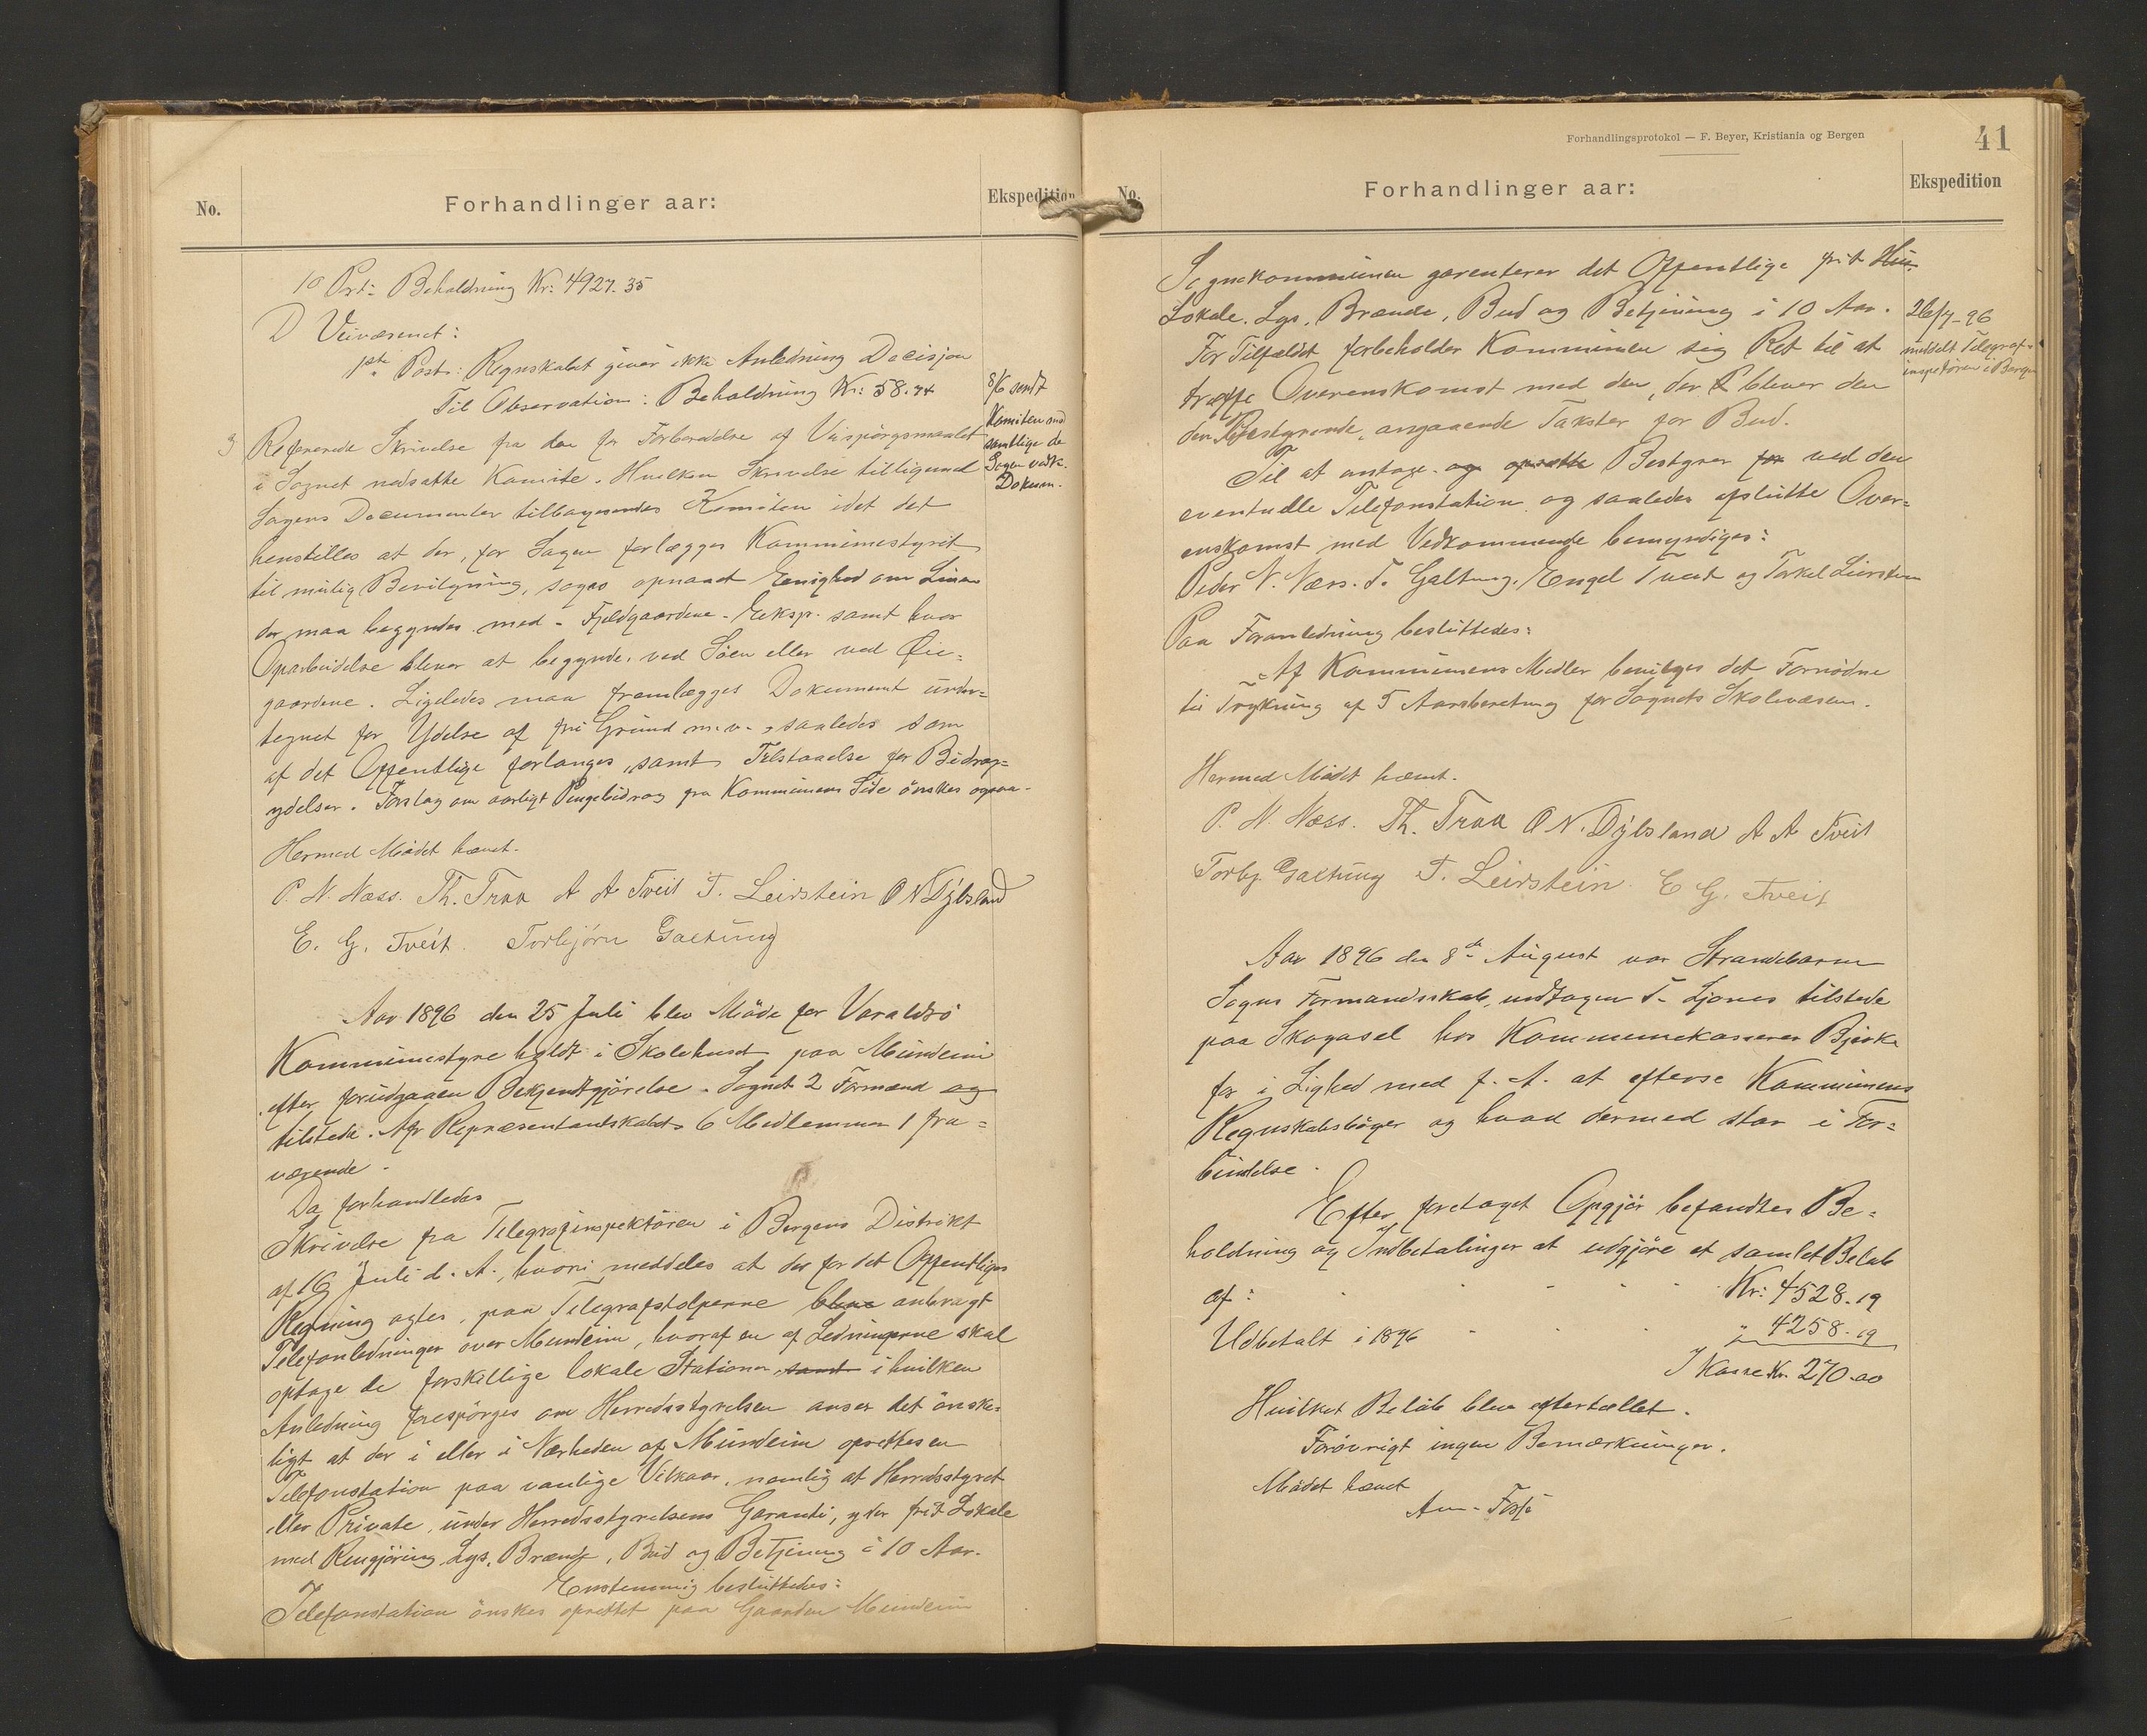 No.
Forhandlinger aar:
Ekspedition
10 Post: Beholdning Kr: 4927.35
D Veivæsenet:
1ste Post: Regnskabet giver ikke Anledning Decisjon
Til Observation: Beholdning Kr: 58.74
3 Refererede Skrivelse fra den for Forberedelse af Veispörgsmaalet
i Sognet nedsatte Komite. Hvilken Skrivelse tilligemed
Sagens Documenter tilbagesendes Komiteen idet det
henstilles at der, før Sagen forlægges Kommunestyret
til mulig Bevilgning, søges opnaaet Enighed om Linen
der maa begyndes med - Fjeldgaardene - Eeksp. samt hvor
Oparbeidelse bliver at begynde, ved Söen eller ved Öie=
gaardene. Ligeledes maa fremlægges Dokument under=
tegnet for Ydelse af fri Grund m.v. saaledes som
af det Offentlige forlanges, samt Tilstaaelse for Bidrag=
ydelser. Forslag om aarligt Pengebidrag fra Kommunens Side önskes ogsaa.
8/6 sendt
Komiteen med
samtlige de
Sagen vedk.
Dokum.
Hermed Mödet hævet.
P. N. Næss. Th. Traa A A Tveit T. Leirstein O N Dÿbsland
E. G. Tveit. Torbjörn Galtung
Aar 1896 den 25 Juli blev Möde for Varaldsö
Kommunestyre holdt i Skolehuset paa Mundeim
efter forudgaaen Bekjendtgjörelse. Sognets 2 Formænd og
tilstede. Af Repræsentantskabets 6 Medlemmer 1 fra=
værende.
Da forhandledes
Skrivelse fra Telegrafinspektören i Bergens Distrikt
af 16 Juli d. A., hvori meddeles at der for det Offentliges
Regning agtes, paa Telegrafstolperne blive anbragt
Telefonledninger over Mundeim, hvoraf en af Ledningerne skal
optage de forskellige lokale Stationer, samt i hvilken
Anledning forespörges om Herredsstyrelsen anser det önske=
ligt at der i eller i Nærheden af Mundeim oprettes en
Telefonstation paa vanlige Vilkaar, nemlig at Herredsstyret
eller Private, under Herredsstyrelsens Garanti, yder frit Lokale
med Rengjöring Lys, Brænde, Bud og Betjening i 10 Aar.
Enstemmig besluttedes:
Telefonstation önskes oprettet paa Gaarden Mundeim
Forhandlingsprotokol — F. Beyer, Kristiania og Bergen
41
No.
Forhandlinger aar:
Ekspedition
Sognekommunen garenterer det Offentlige frit Hus.
Lokale. Lys, Brænde, Bud og Betjening i 10 Aar.
For Tilfældet forbeholder Kommunen sig Ret til at
træffe Overenskomst med den, der bliver den
den Bestyrende, angaaende Takster for Bud.
26/7-96
meddelt Telegraf=
inspektören i Bergen
Til at antage og oprette Bestyrer for ved den
eventuelle Telefonstation og saaledes afslutte Over=
enskomst med Vedkommende bemyndiges:
Peder N. Næss. T. Galtung, Engel Tveit og Torkel Leirstein
Paa Foranledning besluttedes:
Af Kommunens Midler bevilges det Fornödne
til Trykning af 5 Aarsberetning for Sognets Skolevæsen.
Hermed Mödet hævet.
P. N. Næss. Th. Traa O N. Dÿbsland A A Tveit
Torbj. Galtung T. Leirstein. E G. Tveit
Aar 1896 den 8de August var Strandebarm
Sogns Formandsskab, undtagen T. Ljones tilstede
paa Skogasel hos Kommunekasserer Bjerke
for i Lighed med f. A. at efterse Kommunens
Regnskabsböger og hvad dermed staar i For=
bindelse.
Efter foretaget Opgjör befandtes Be=
holdning og Indbetalinger at udgjöre et samlet Belöb
af: Kr: 4528.19
Udbetalt i 1896 " 4258.19
I Kasse Kr. 270.00
Hvilket Belöb blev eftertællet.
Forövrigt ingen Bemærkninger.
Mödet hævet